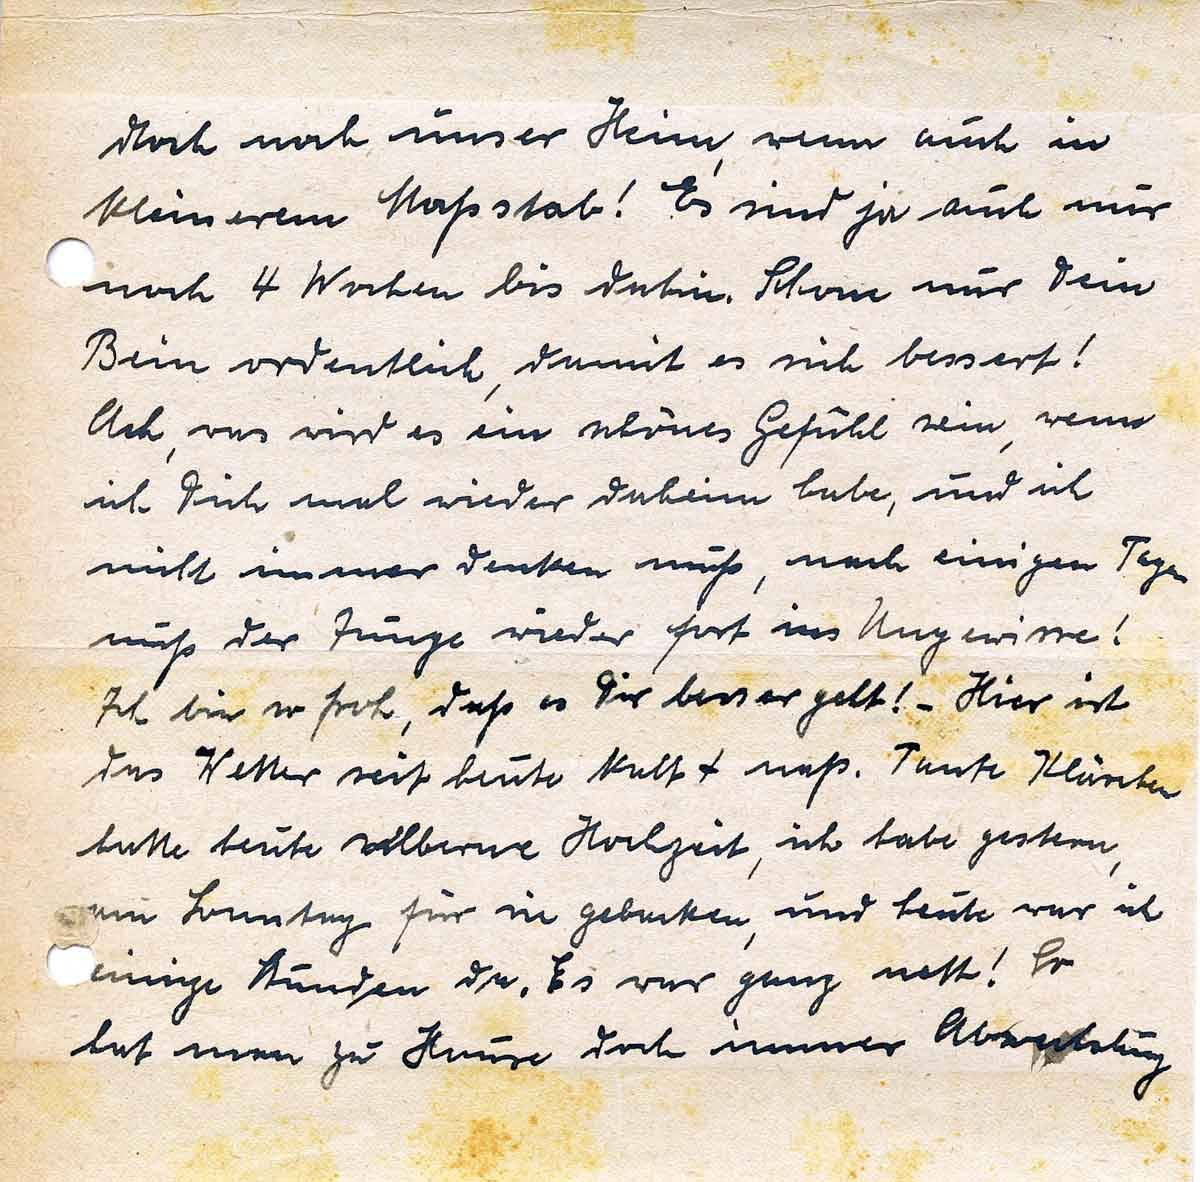 doch noch unser Heim, wenn auch in
kleinerem Maßstab! Es sind ja auch nur
noch 4 Wochen bis dahin. Schone nur Dein
Bein ordentlich, damit es sich bessert!
Ach, was wird es ein schönes Gefühl sein, wenn
ich Dich mal wieder daheim habe, und ich
nicht immer denken muß, nach einigen Tagen
muß der Junge wieder fort ins Ungewisse!
Ich bin so froh, daß es Dir besser geht! - Hier ist
das Wetter seit heute kalt + naß. Tante Klärchen
hatte heute silberne Hochzeit, ich habe gestern,
am Sonntag für sie gebacken, und heute war ich
einige Stunden da. Es war ganz nett! So
hat man zu Hause doch immer Abwechslung